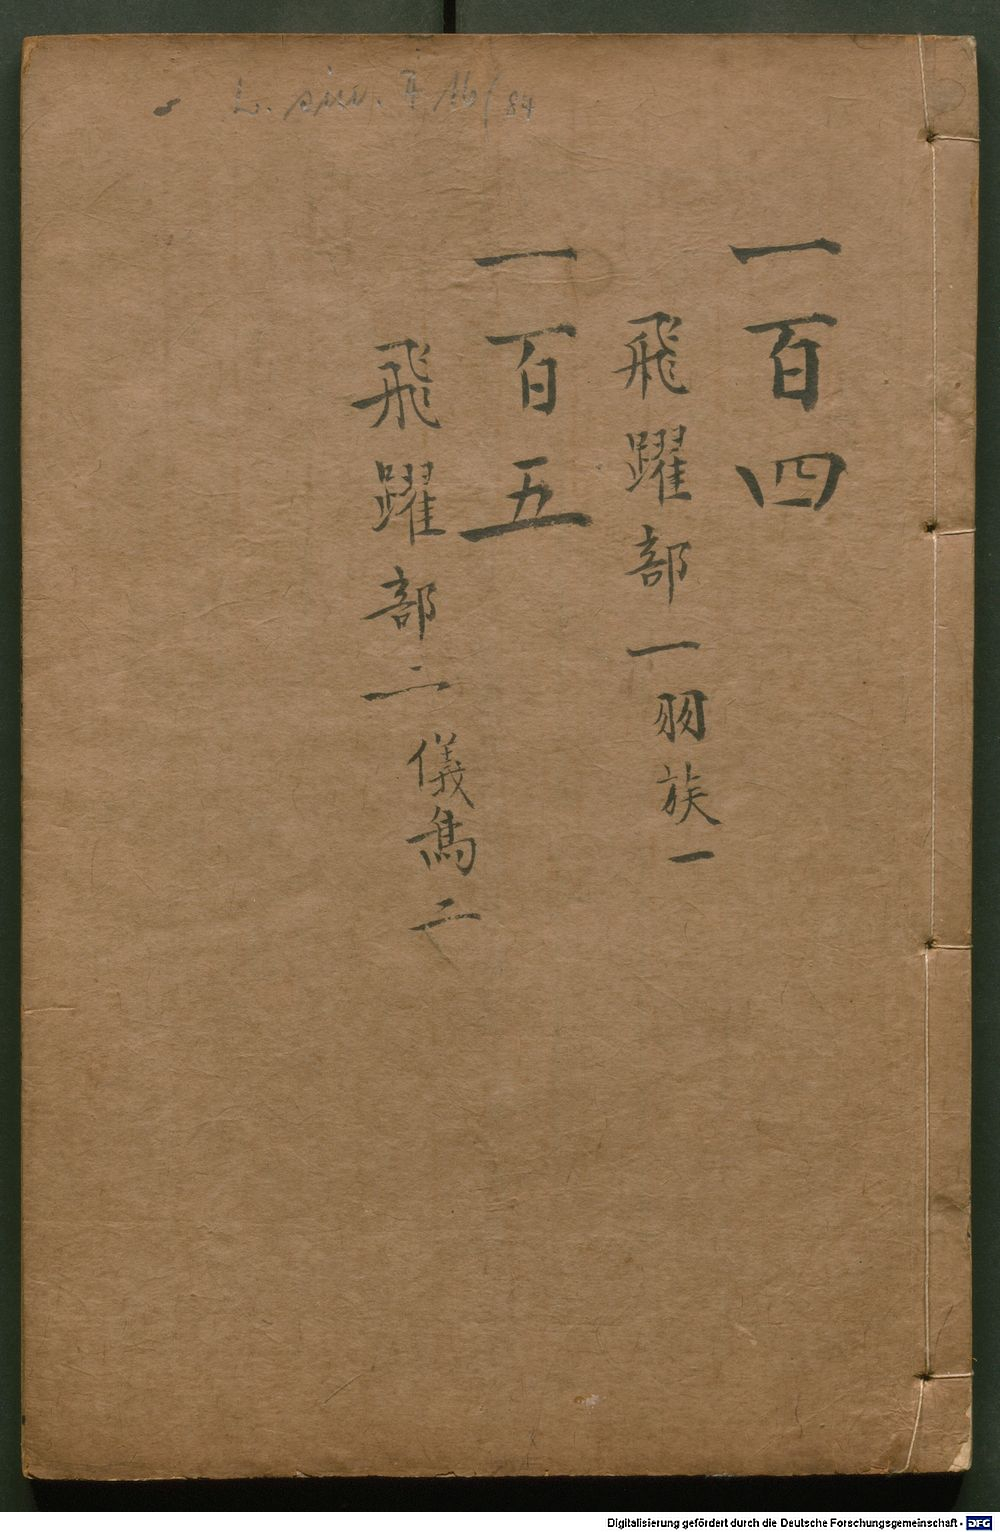 L. sin. F 16/84
一百四
飛躍部一羽族一
一百五
飛躍部二儀鳥二
Digitalisierung gefördert durch die Deutsche Forschungsgemeinschaft - DFG